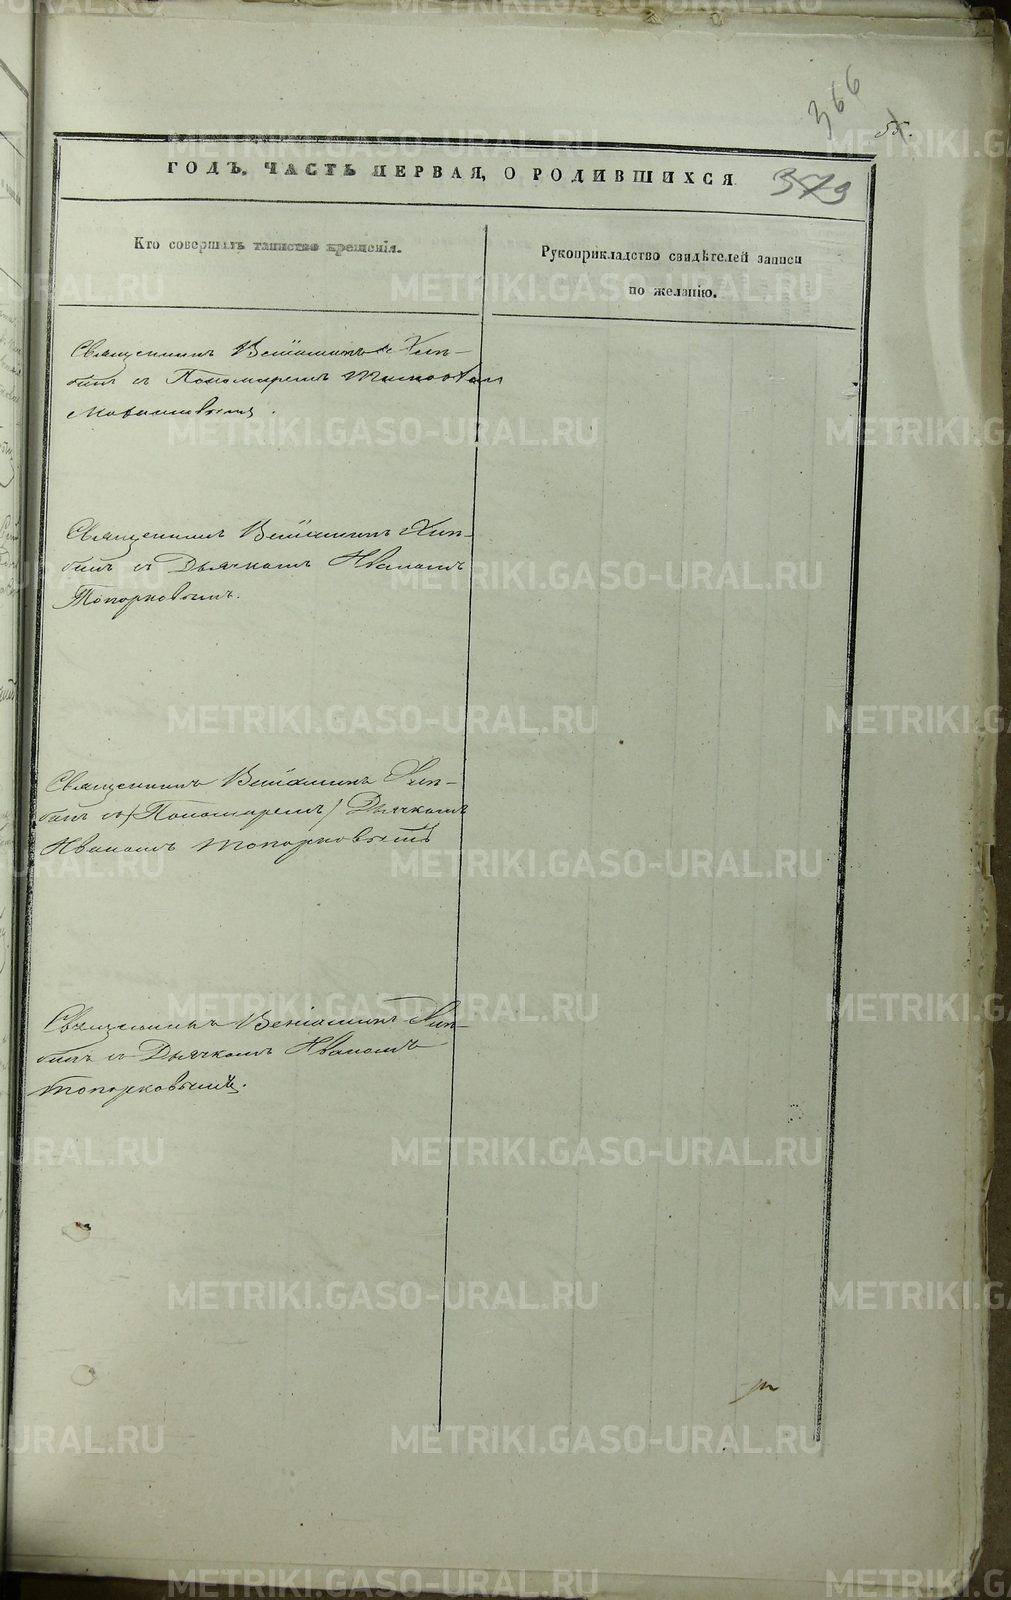 366
55.
ГОДЪ. ЧАСТЬ ПЕРВАЯ, О РОДИВШИХСЯ
379
Кто совершалъ таинство крещенія.
Рукоприкладство свидѣтелей записи
по желанію.
Священникъ
съ Пономаремъ
Священникъ Веніаминъ
съ Дьячкомъ Иваномъ
Топорковымъ.
Священникъ Веніаминъ
съ (Пономаремъ) Дьячкомъ
Иваномъ Топорковымъ
Священникъ Веніаминъ
съ Дьячкомъ Иваномъ
Топорковымъ.
METRIKI.GASO-URAL.RU